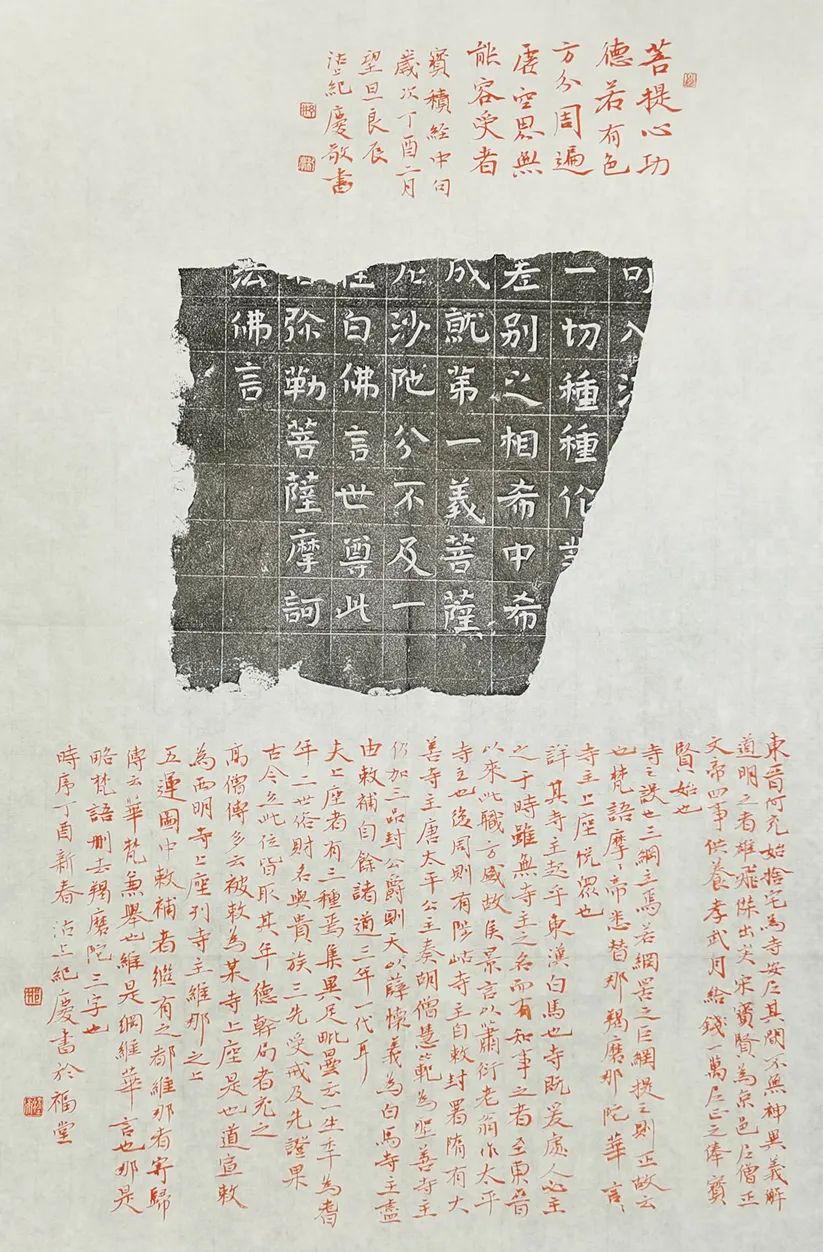 菩提心功
德若有色
方分周遍
虚空界無
能容受者
寶積經中句
歲次丁酉二月
望旦良辰
沽上紀慶敬書
可入法
一切種種作業
差別之相希中希
成就第一義菩薩
尼沙陀分不及一
住白佛言世尊此
名弥勒菩薩摩訶
法佛言
東晉何充始捨宅為寺安尼其間不無神異義解
道明之者雄飛傑出矣宋寶賢為京邑尼僧正
文帝四事供養孝武月給錢一萬尼正之俸寶
賢始也
寺之設也三綱立焉若網罟之巨綱提之則正故云
也梵語摩摩帝悉替那羯磨那陀華言言
寺主上座悅眾也
詳其寺主起乎東漢白馬也寺既爰處人必主
之于時雖無寺主之名而有知事之者至東晉
以來此職方盛故侯景言以蕭衍老翁作太平
寺主也後周則有陟岵寺主自敕封署隋有大
善寺主唐太平公主奏胡僧慧範為聖善寺主
仍加三品封公爵則天以薛懷義為白馬寺主盡
由敕補自餘諸道三年一代耳
夫上座者有三種焉集異足毗曇云一生年為耆
年二世俗財名與貴族三先受戒及先證果
古今立此位皆取其年德幹局者充之
高僧傳多云被敕為某寺上座是也道宣敕
為西明寺上座列寺主維那之上
五運圖中敕補者繼有之都維那者寄歸
傳云華梵兼舉也維是綱維華言也那是
略梵語刪去羯磨陀三字也
時序丁酉新春沽上紀慶書於福堂